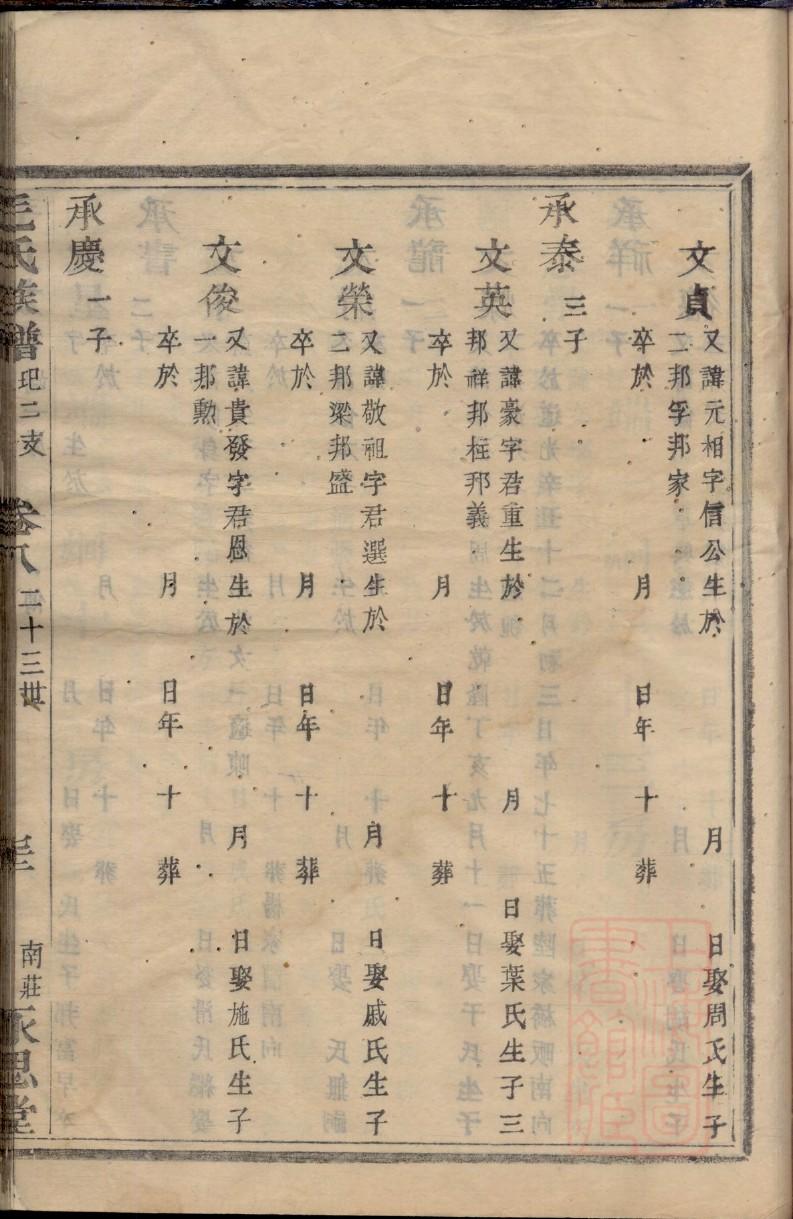 文貞
又諱元相字信公生於 月 日娶周氏生子
二邦孚邦家
卒於 月 日年 十 葬
承泰 三子
文英
又諱豪字君重生於 月 日娶葉氏生子三
邦祥邦枉邦義
卒於 月 日年 十 葬
文榮
又諱敬祖字君選生於 月 日娶戚氏生子
二邦梁邦盛
卒於 月 日年 十 葬
文俊
又諱貴發字君恩生於 月 日娶施氏生子
一邦勲
卒於 月 日年 十 葬
承慶 一子
毛氏族譜 玘二支 卷八 二十三世 南莊 永思堂